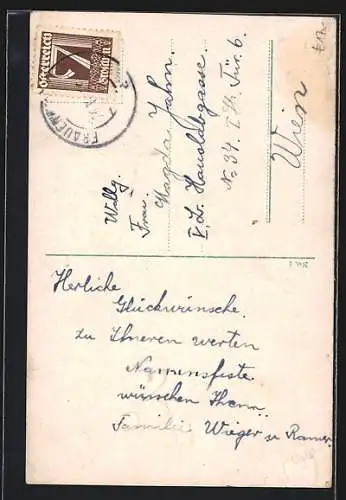 Österreich
7
Groschen
FRAUEN
Wllg.
Frau
Magda Jahn.
V. Bz. Hauslabgasse.
No 34. I St. Tür. 6.
Wien
Herliche
Glückwünsche.
zu Ihneren werten
Namensfeste.
wünschen Ihnen.
Familie Wieger u